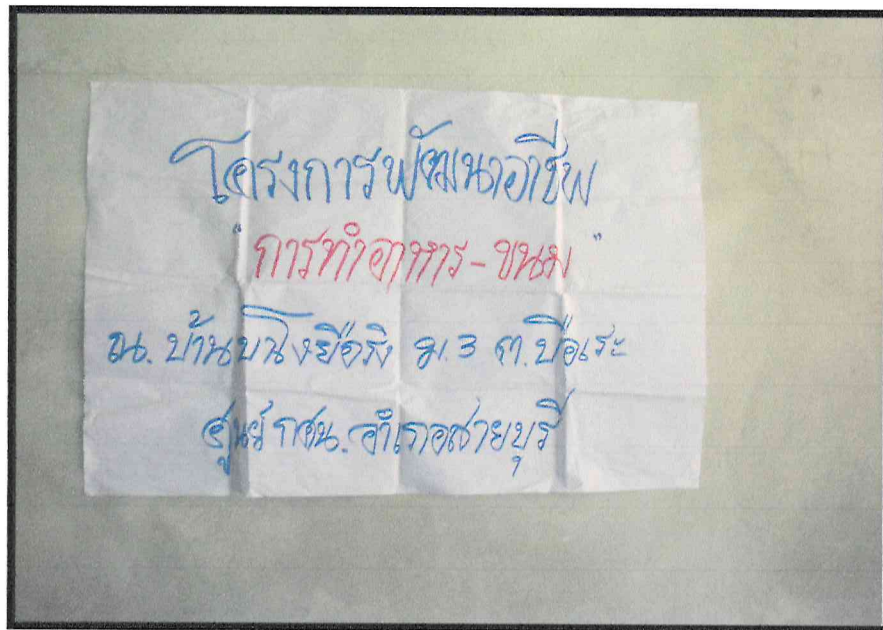 โครงการพัฒนาอาชีพ
"การทำอาหาร-ขนม"
ณ.บ้านบนโงยือริง ม.3 ต.บือเระ
ศูนย์ กศน.อำเภอสายบุรี